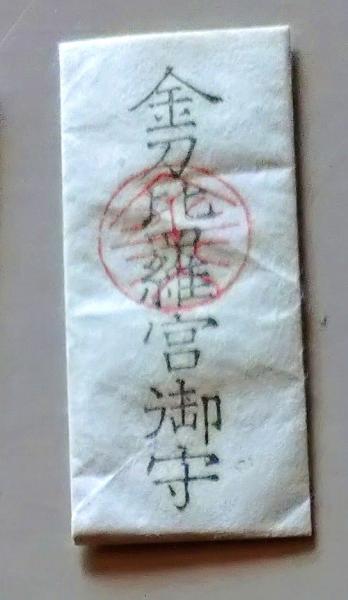 金刀比羅宮御守